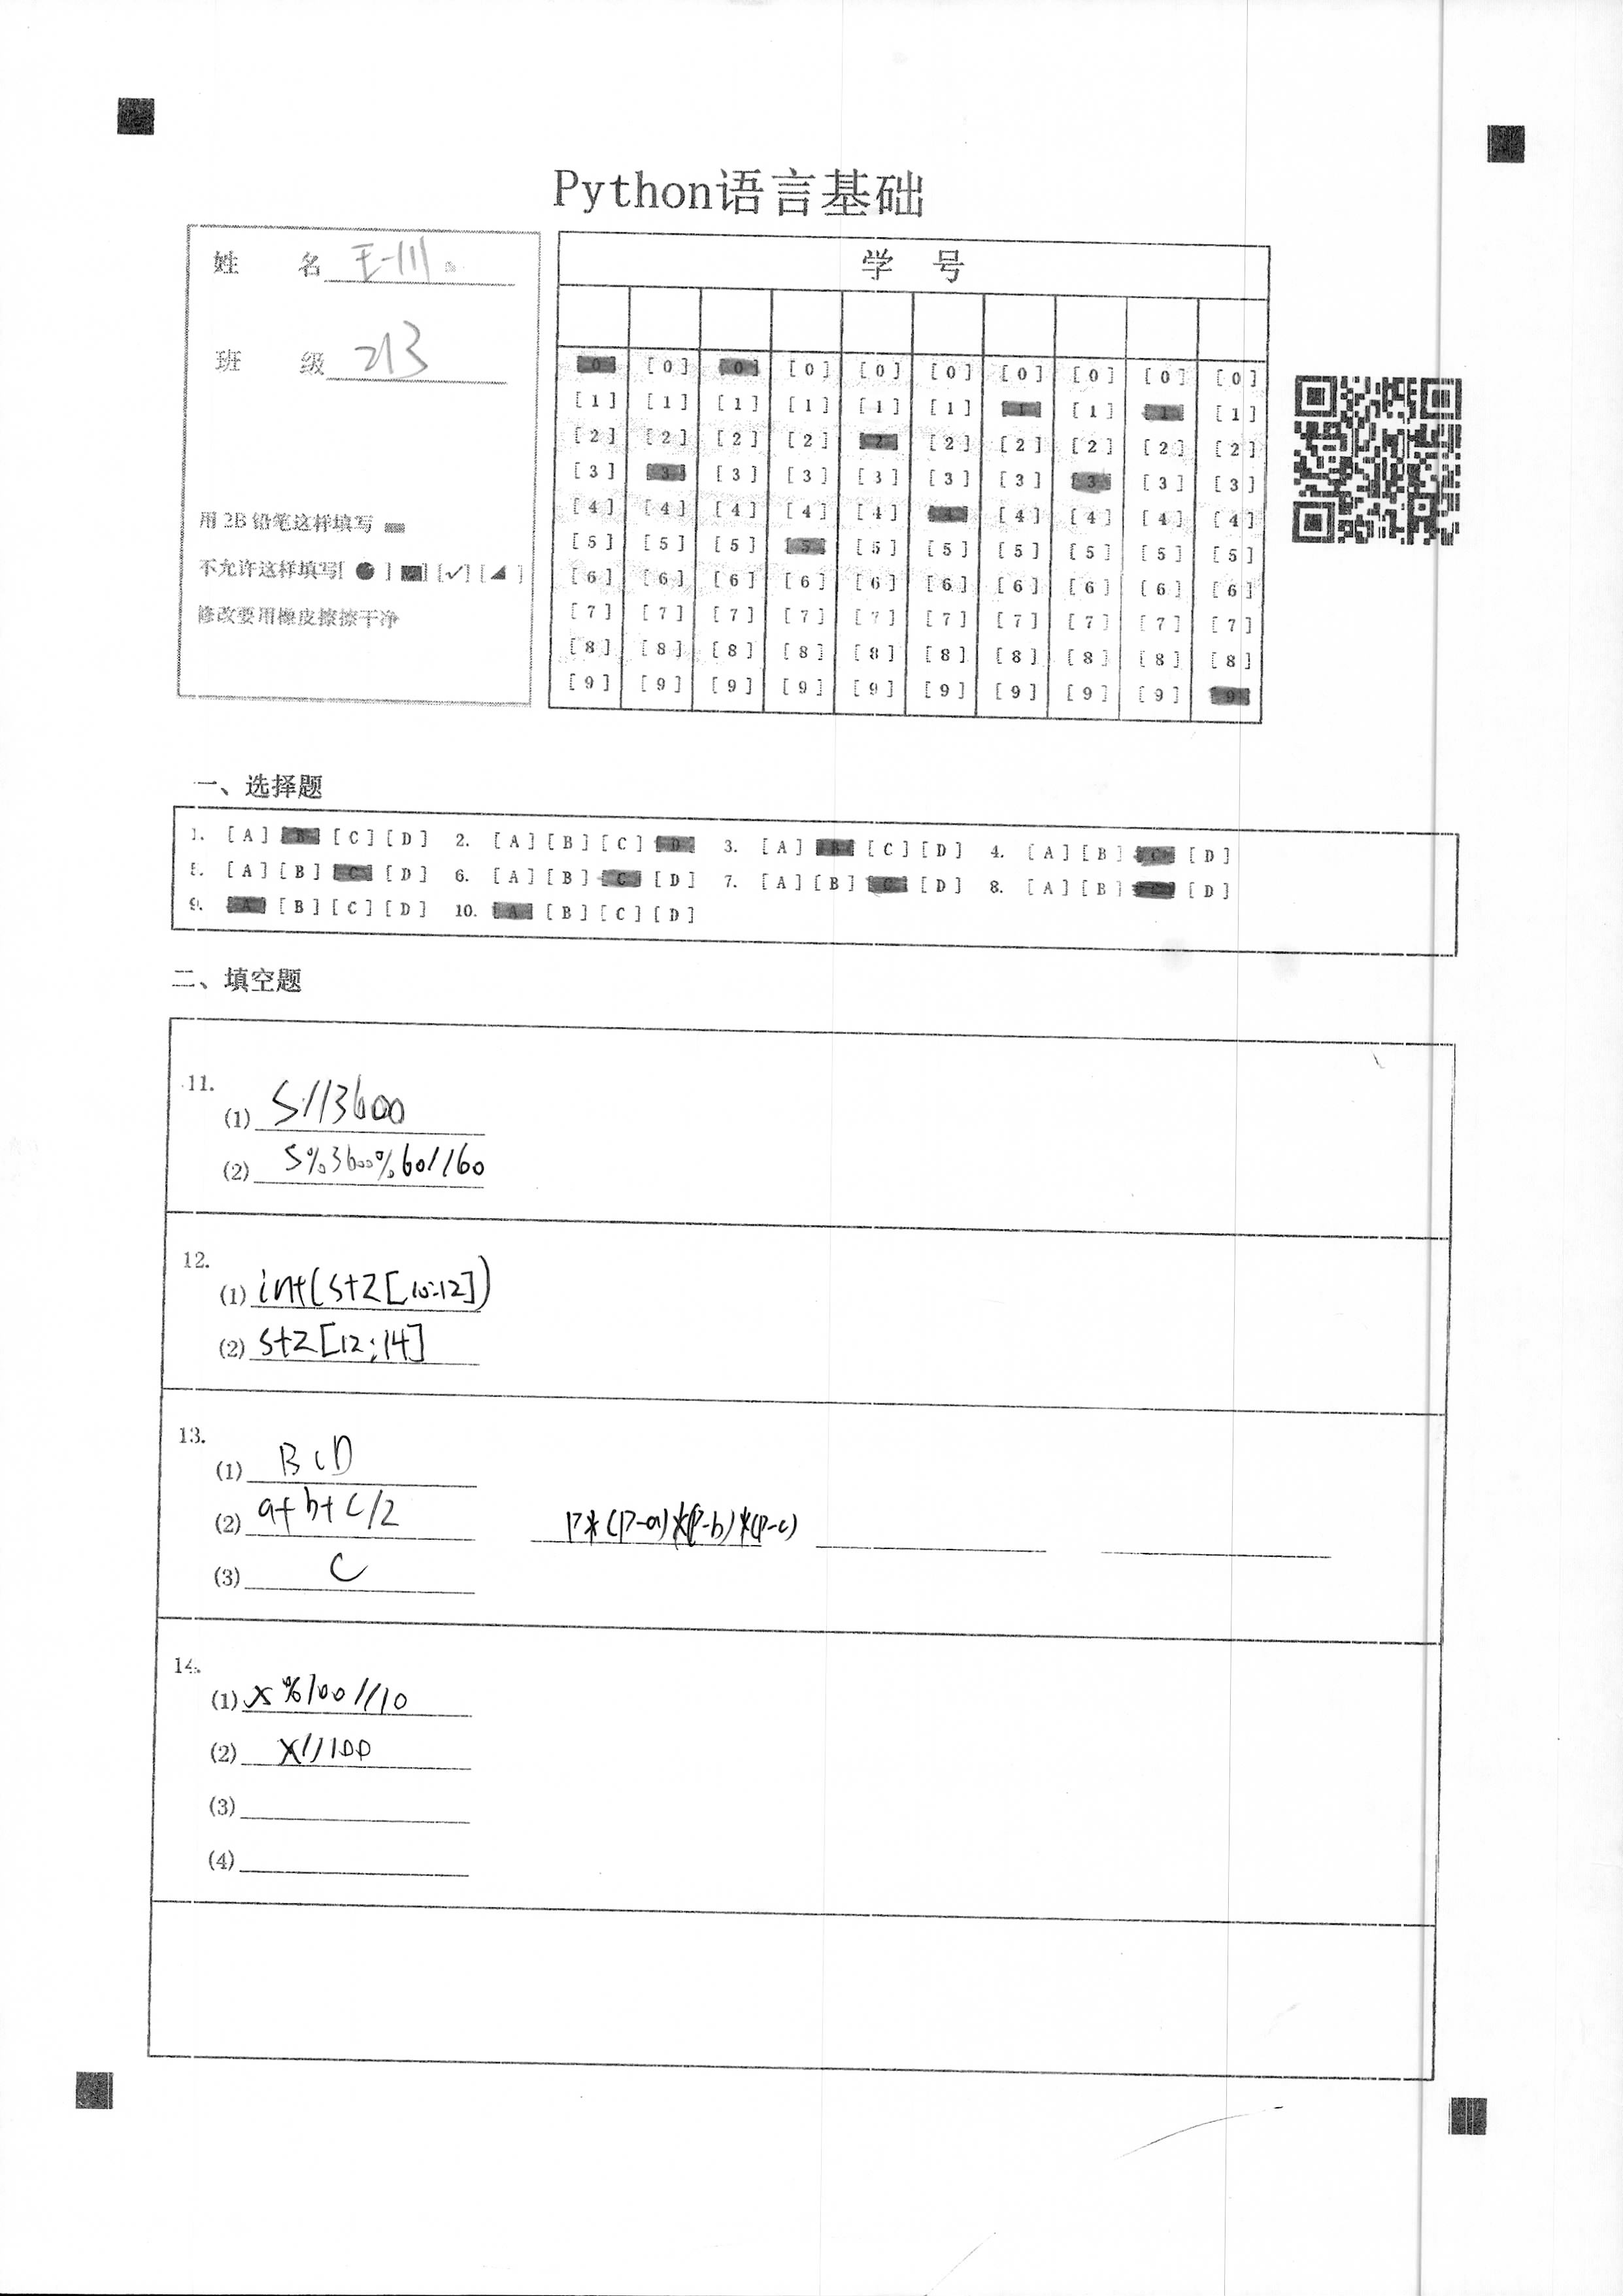 Python语言基础
姓 名 王一川
班 级 213
用 2B 铅笔这样填写
不允许这样填写[ ● ] [■] [✓] [◢ ]
修改要用橡皮擦擦干净
学 号
[0] [0] [0] [0] [0] [0] [0] [0] [0] [0]
[1] [1] [1] [1] [1] [1] [1] [1] [1] [1]
[2] [2] [2] [2] [2] [2] [2] [2] [2] [2]
[3] [3] [3] [3] [3] [3] [3] [3] [3] [3]
[4] [4] [4] [4] [4] [4] [4] [4] [4] [4]
[5] [5] [5] [5] [5] [5] [5] [5] [5] [5]
[6] [6] [6] [6] [6] [6] [6] [6] [6] [6]
[7] [7] [7] [7] [7] [7] [7] [7] [7] [7]
[8] [8] [8] [8] [8] [8] [8] [8] [8] [8]
[9] [9] [9] [9] [9] [9] [9] [9] [9] [9]
一、选择题
1. [A] [B] [C] [D] 2. [A] [B] [C] [D] 3. [A] [B] [C] [D] 4. [A] [B] [C] [D]
5. [A] [B] [C] [D] 6. [A] [B] [C] [D] 7. [A] [B] [C] [D] 8. [A] [B] [C] [D]
9. [A] [B] [C] [D] 10. [A] [B] [C] [D]
二、填空题
11.
(1) S//3600
(2) S%3600%60//60
12.
(1) int(stz[10:12])
(2) stz[12:14]
13.
(1) BCD
(2) a+b+c/2 p*(p-a)*(p-b)*(p-c)
(3) C
14.
(1) x%100//10
(2) x//100
(3)
(4)